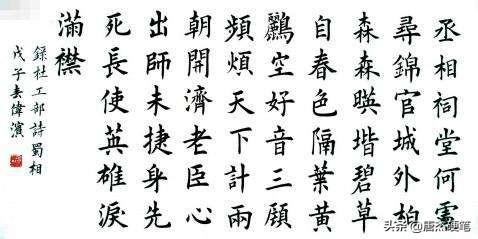 丞相祠堂何處
尋錦官城外柏
森森暎堦碧草
自春色隔葉黃
鸝空好音三顧
頻煩天下計兩
朝開濟老臣心
出師未捷身先
死長使英雄淚
滿襟
錄杜工部詩蜀相
戊子春偉濱
头条 @唐杰硬笔